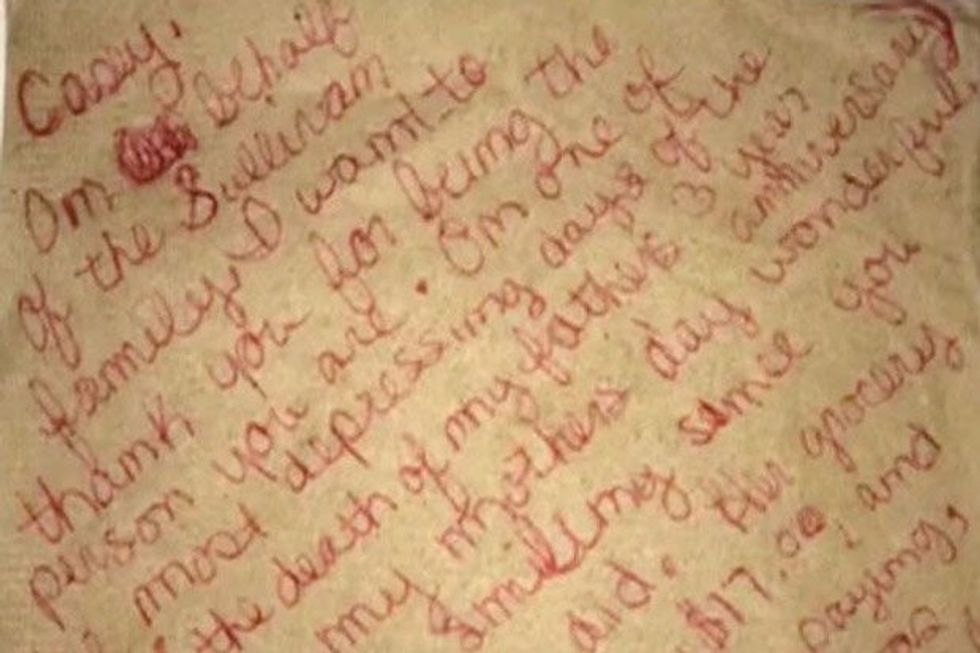 Casey,
On behalf
of the Sullivan
family I want to
thank you for being the
person you are. On one of
most depressing days of the
the death of my father's 3 year anniversary
my mothers day wonderful
smiling since you
did. Her grocery
$17.00, and
saying,